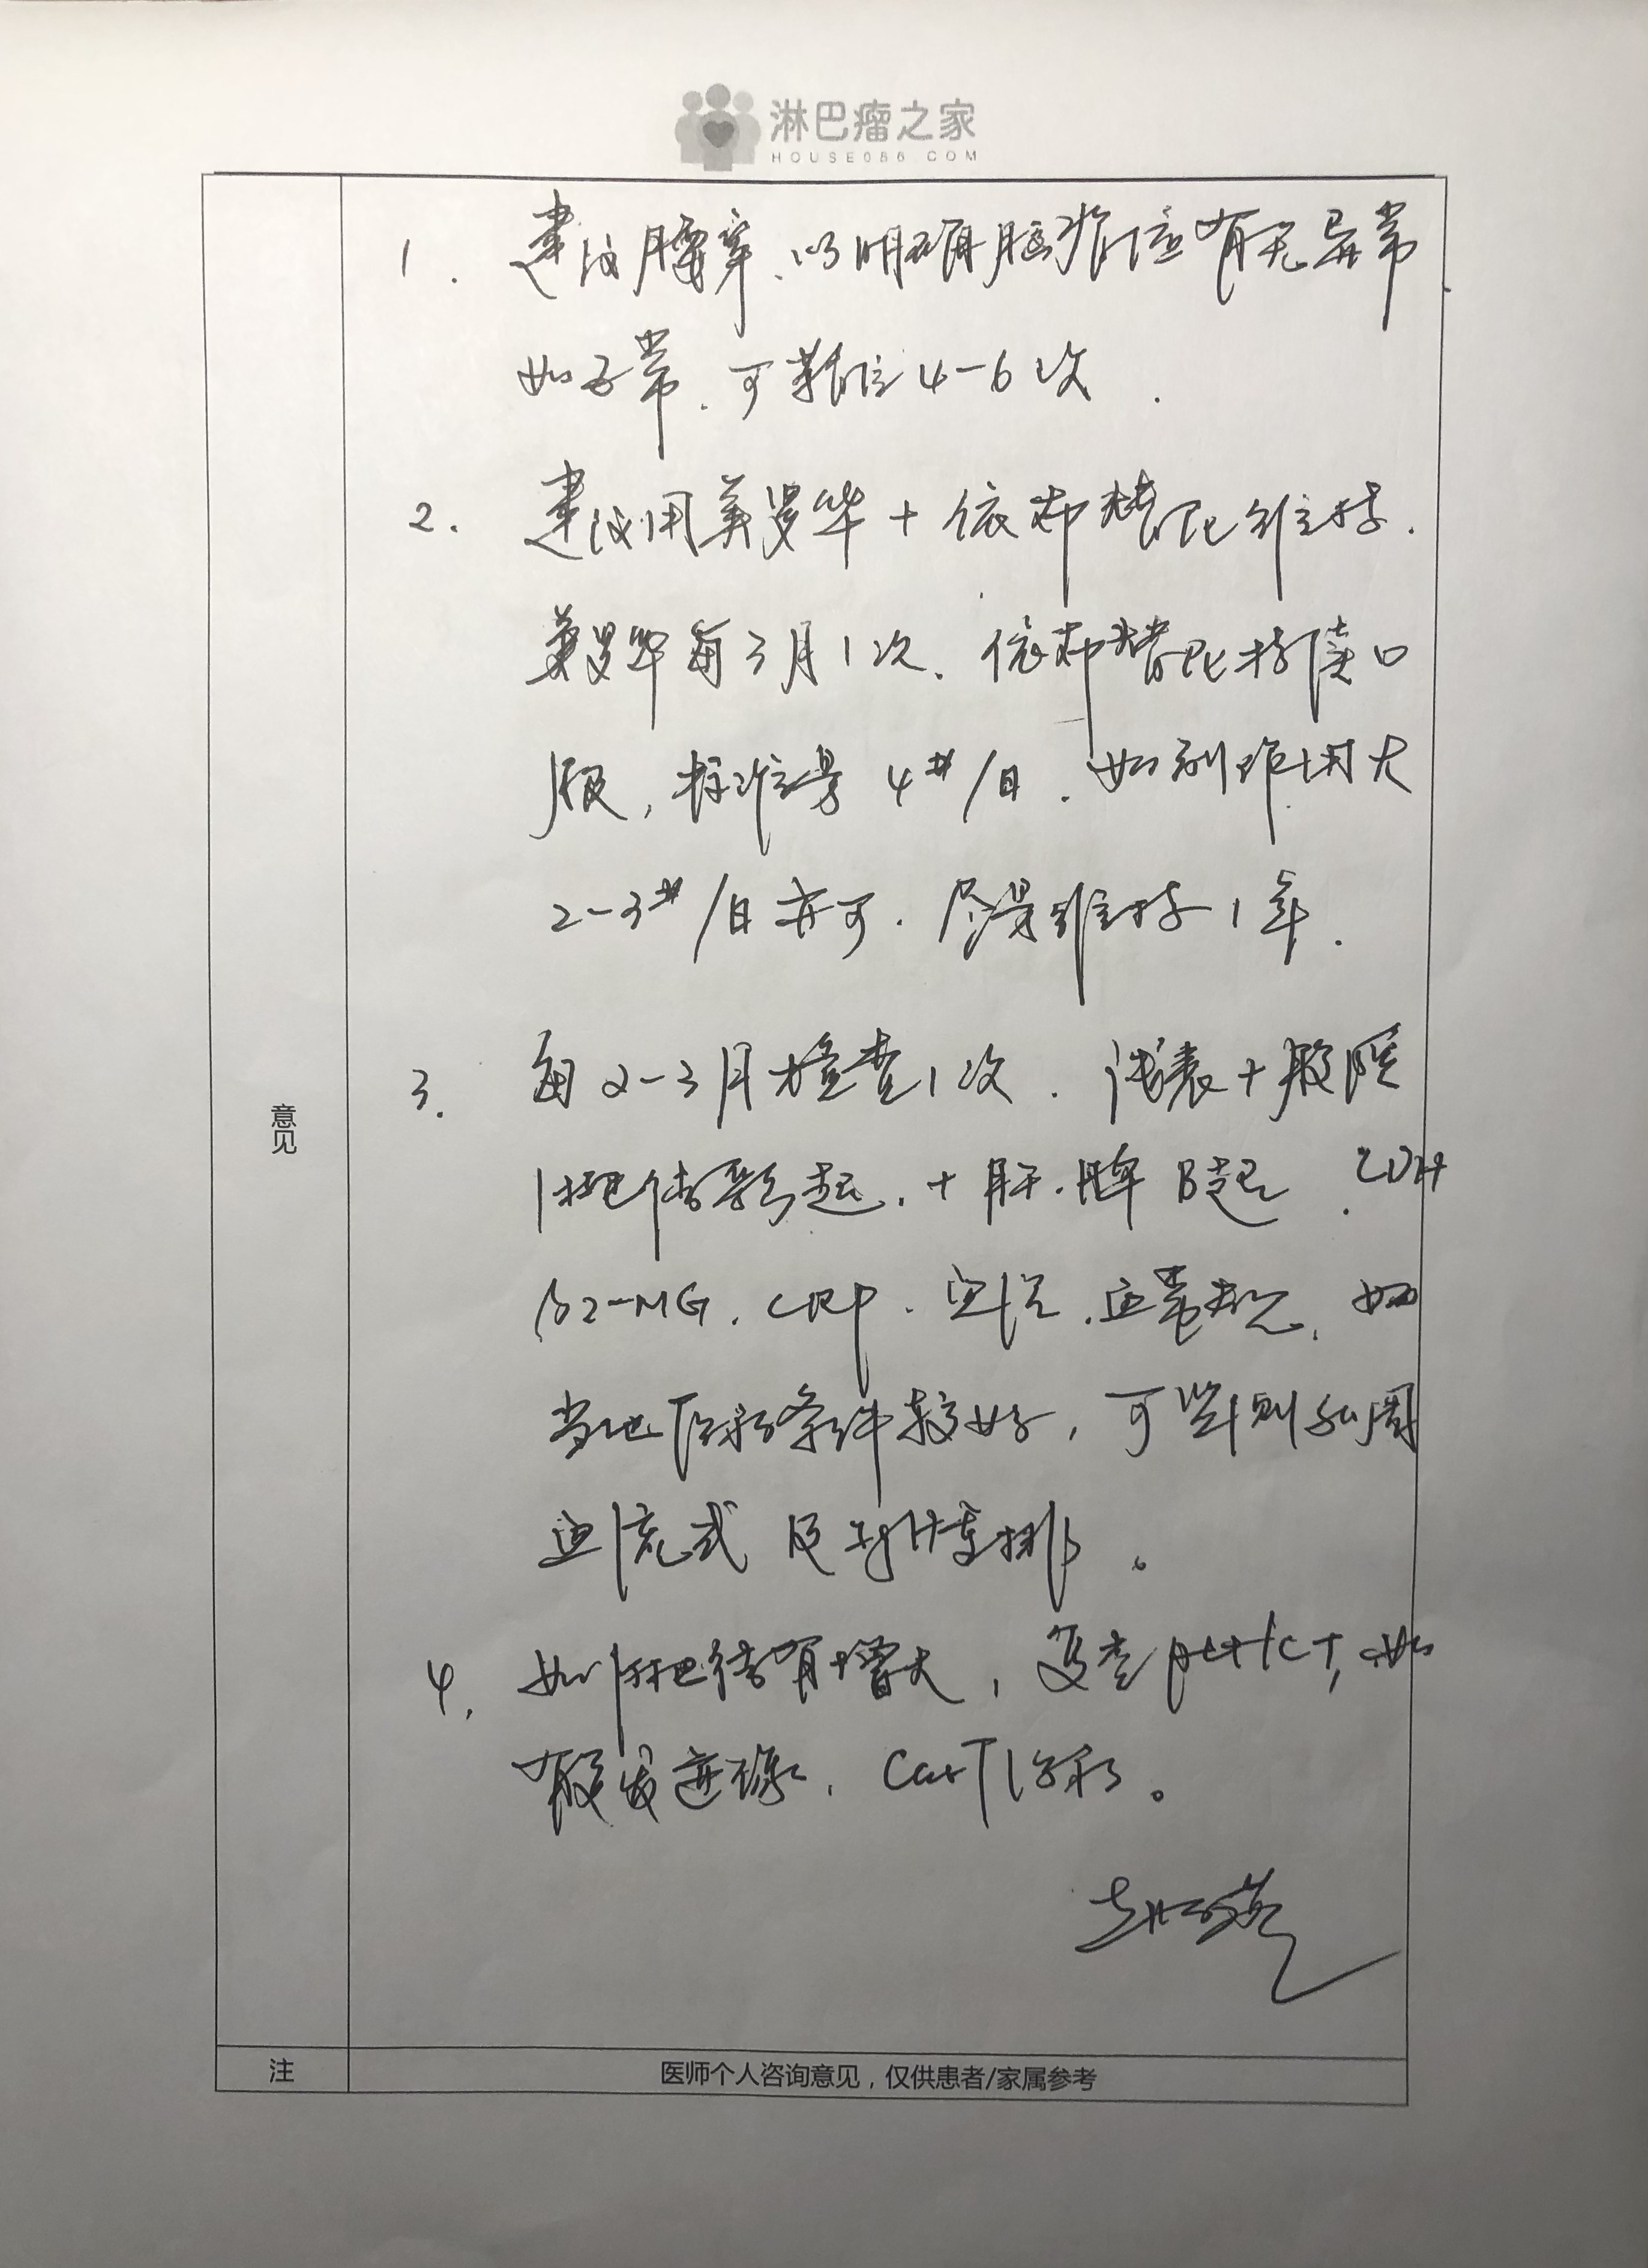 淋巴瘤之家
HOUSE086.COM
1. 建议腰穿、以明确脑脊液有无异常
如正常、可鞘注4-6次.
2. 建议用美罗华+依布替尼维持.
美罗华每3月1次、依布替尼持续口
服，标准量4#/日. 如副作用大
2-3#/日亦可. 尽量维持1年.
意见
3. 每2-3月检查1次. 浅表+腹腔
淋巴结彩超、+肝、脾B超. LDH
β2-MG、CRP、血沉、血常规、如
当地医疗条件较好，可监测外周
血流式及重排。
4. 如淋巴结有增大，复查pet/CT, 如
有复发迹象、CarT治疗。
注
医师个人咨询意见，仅供患者/家属参考